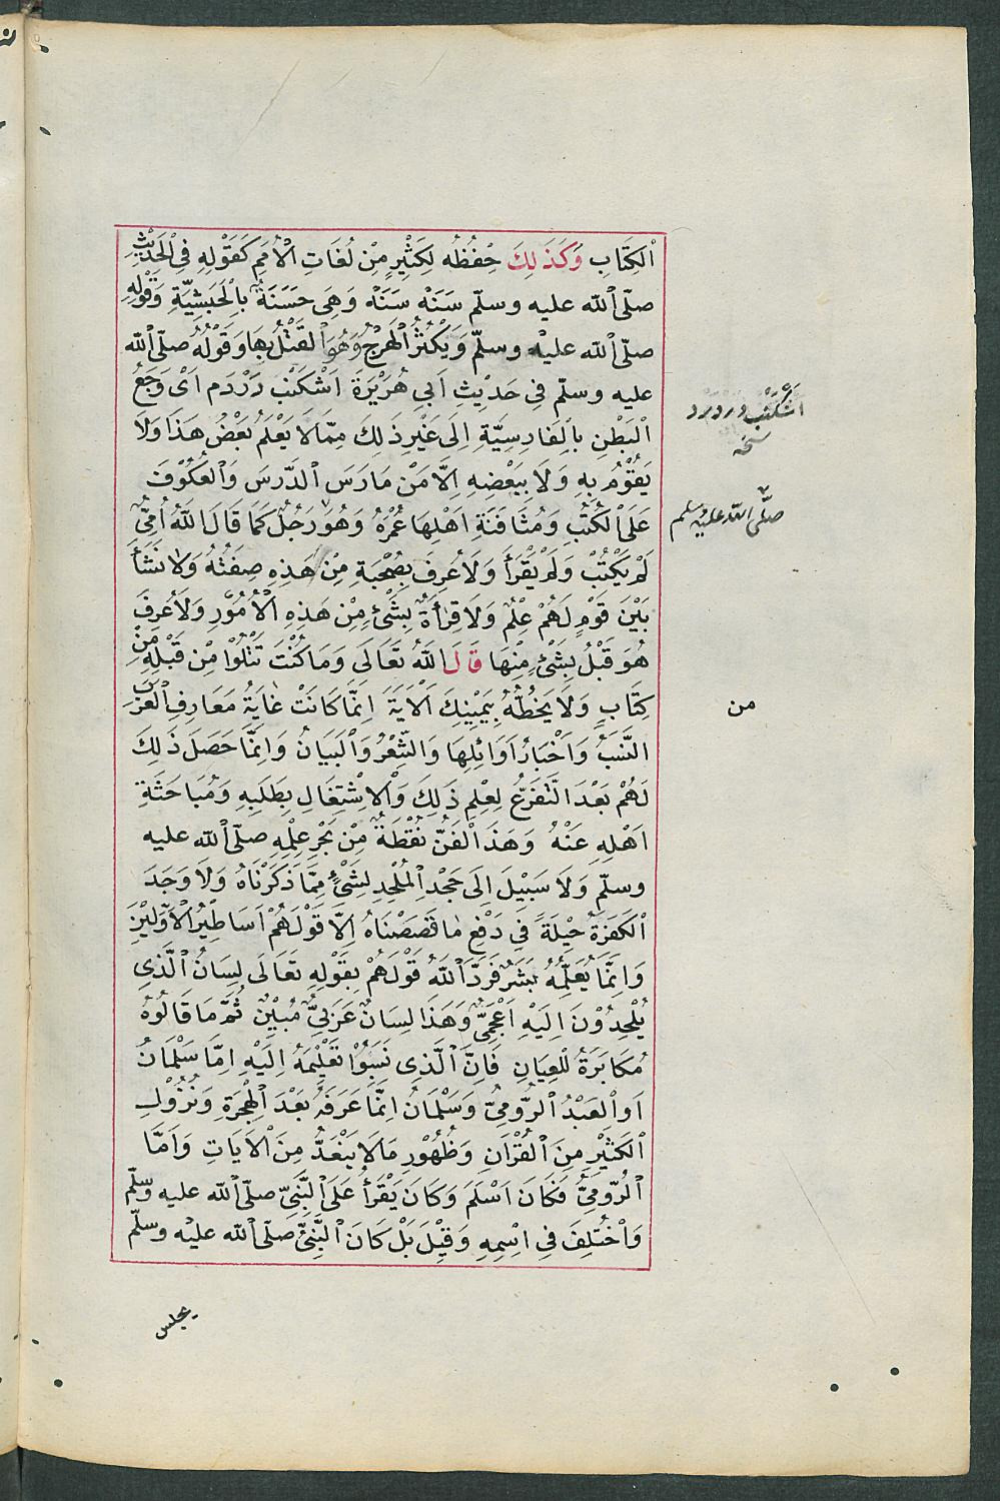 اْلكِتَابِ وَكَذَلِكَ حِفْظُهُ لِكَثِيْرٍ مِنْ لُغَاتِ الْأُمَمِ كَقَوْلِهِ فِى الْحَدِيْثِ
صلّى الله عليه وسلّم سَنَهْ سَنَهْ وَهِىَ حَسَنَةٌ بِالْحَبَشِيَّةِ وَقَوْلِهِ
صلّى الله عليه وسلّم وَيَكْثُرُ الْهَرْجُ وَهُوَ الْقَتْلُ بِهَا وَقَوْلُهُ صلّى الله
عليه وسلّم فِى حَدِيْثِ اَبِي هُرَيْرَةَ اَشْكَنْب دَرْدَم اَىْ وَجَعُ
الْبَطْنِ بِالْفَارِسِيَّةِ اِلَى غَيْرِ ذَلِكَ مِمَّا لَا يَعْلَمُ بَعْضُ هَذَا وَلَا
يَقُوْمُ بِهِ وَلَا بِبَعْضِهِ اِلَّا مَنْ مَارَسَ الدَّرْسَ وَالْعُكُوْفَ
عَلَى الْكُتُبِ وَمُثَافَنَةِ اَهْلِهَا عُمْرَهُ وَهُوَ رَجُلٌ كَمَا قَالَ اللهُ اُمِّىٌّ
لَمْ يَكْتُبْ وَلَمْ يَقْرَأْ وَلَا عُرِفَ بِصُحْبَةِ مِنْ هَذِهِ صِفَتُهُ وَلَا نَشَأَ
بَيْنَ قَوْمٍ لَهُمْ عِلْمٌ وَلَا قِرَأَةٌ بِشَىْءٍ مِنْ هَذِهِ الْأُمُوْرِ وَلَا عُرِفَ
هُوَ قَبْلُ بِشَىْءٍ مِنْهَا قَالَ اللهُ تَعَالَى وَمَا كُنْتَ تَتْلُوْا مِنْ قَبْلِهِ مِنْ
كِتَابٍ وَلَا يَخُطُّهُ بِيَمِيْنِكَ اَلْآيَةَ اِنَّمَا كَانَتْ غَايَةُ مَعَارِفِ الْعَرَبِ
النَّسَبُ وَاَخْبَارُ اَوَائِلِهَا وَالشِّعْرُ وَالْبَيَانُ وَاِنَّمَا حَصَلَ ذَلِكَ
لَهُمْ بَعْدَ التَّفَرُّغِ لِعِلْمِ ذَلِكَ وَالْاِشْتِغَالِ بِطَلَبِهِ وَمُبَاحَثَةِ
اَهْلِهِ عَنْهُ وَهَذَا الْفَنُّ نُقْطَةٌ مِنْ بَحْرِ عِلْمِهِ صلّى الله عليه
وسلّم وَلَا سَبِيْلَ اِلَى جَحْدِ الْمُلْحِدِ لِشَىْءٍ مِمَّا ذَكَرْنَاهُ وَلَا وَجَدَ
الْكَفَرَةُ حِيْلَةً فِي دَفْعِ مَا قَصَصْنَاهُ اِلَّا قَوْلَهُمْ اَسَاطِيْرُ الْأَوَّلِيْنَ
وَاِنَّمَا يُعَلِّمُهُ بَشَرٌ فَرَدَّ اللهُ قَوْلَهُمْ بِقَوْلِهِ تَعَالَى لِسَانُ الَّذِى
يُلْحِدُوْنَ اِلَيْهِ اَعْجَمِىٌّ وَهَذَا لِسَانٌ عَرَبِىٌّ مُبِيْنٌ ثُمَّ مَا قَالُوْهُ
مُكَابَرَةٌ لِلْعِيَانِ فَاِنَّ الَّذِى نَسَبُوْا تَعْلِيْمَهُ اِلَيْهِ اِمَّا سَلْمَانُ
اَوِ الْعَبْدُ الرُّومِىُّ وَسَلْمَانُ اِنَّمَا عَرَفَهُ بَعْدَ الْهِجْرَةِ وَنُزُوْلِ
الْكَثِيْرِ مِنَ الْقُرْاَنِ وَظُهُوْرِ مَا لَا يَنْعَدُّ مِنَ الْاَيَاتِ وَاَمَّا
الرُّومِىُّ فَكَانَ اَسْلَمَ وَكَانَ يَقْرَأُ عَلَى النَّبِىِّ صلّى الله عليه وسلّم
وَاخْتُلِفَ فِي اسْمِهِ وَقِيْلَ بَلْ كَانَ النَّبِىُّ صلّى الله عليه وسلّم
اَشْكَنْب دردرد
نسخه
صلَّى الله عليه وسلم
من
يجلس